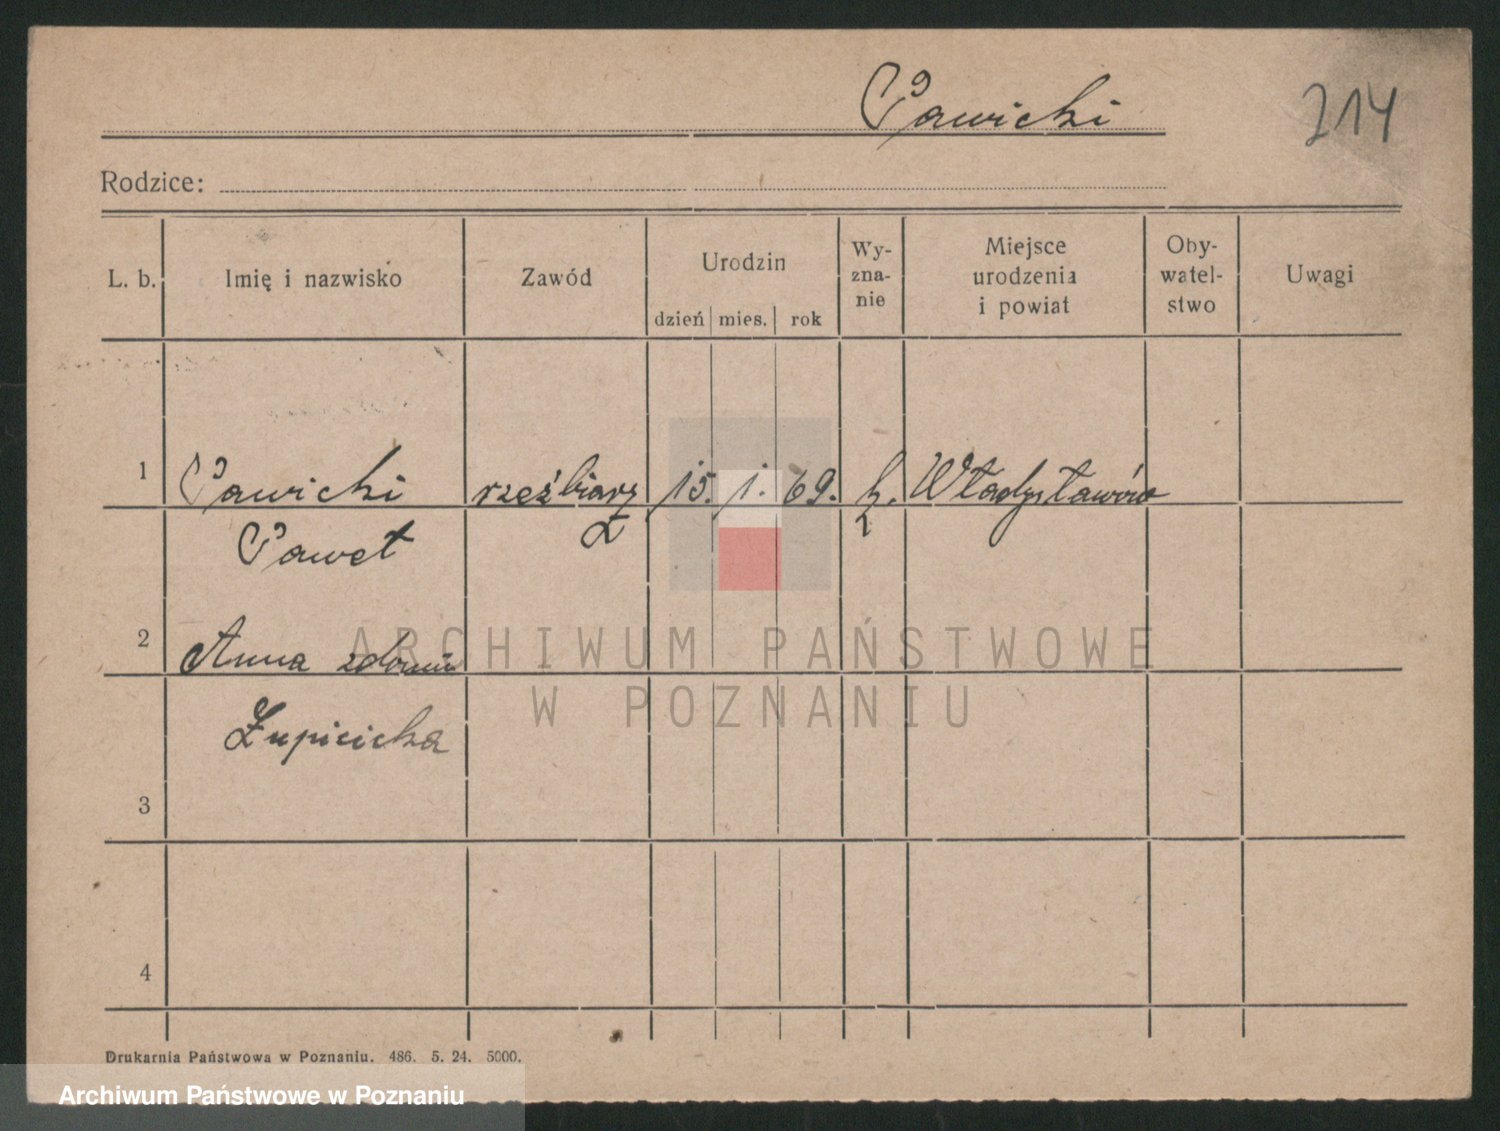 Pawicki
214
Rodzice:
L. b.
Imię i nazwisko
Zawód
Urodzin
dzień mies. rok
Wy-
zna-
nie
Miejsce
urodzenia
i powiat
Oby-
watel-
stwo
Uwagi
1 Pawicki rzeźbiarz 15. 1. 69. k. Władysławów
Paweł
2 Anna zdomu
3
4
ARCHIWUM PAŃSTWOWE
W POZNANIU
Drukarnia Państwowa w Poznaniu. 486. 5. 24. 5000.
Archiwum Państwowe w Poznaniu